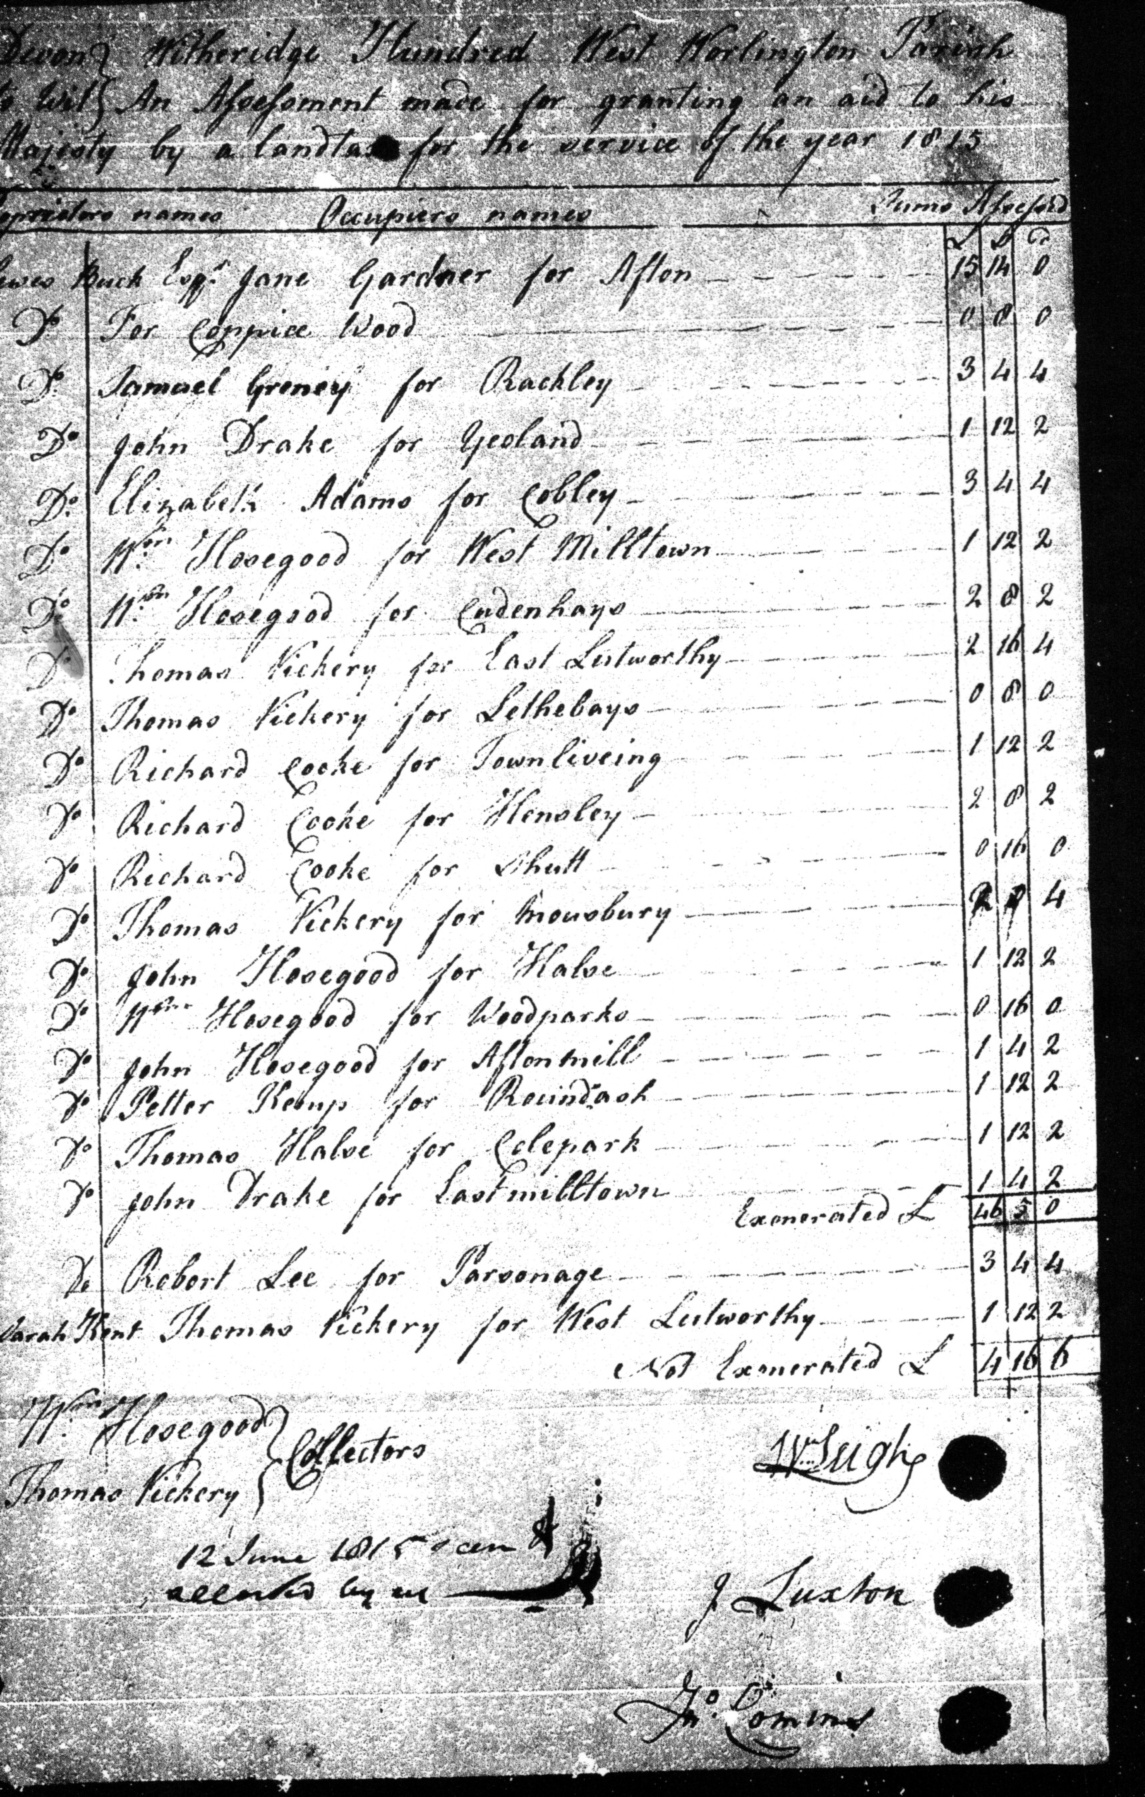 Devon } Witheridge Hundred West Worlington Parish
to Wit } An Assessment made for granting an aid to his
Majesty by a landtax for the service of the year 1815
Proprietors names Occupiers names Sums Assessed
£ s d
Lewes Buck Esqr. Jane Gardner for Afton 15 14 0
Do For Coppice Wood 0 8 0
Do Samuel Greney for Rackley 3 4 4
Do John Drake for Yeoland 1 12 2
Do. Elizabeth Adams for Cobley 3 4 4
Do Wm. Hosegood for West Milltown 1 12 2
Do Wm. Hosegood for Cudenhays 2 8 2
Do Thomas Vickery for East Lutworthy 2 16 4
Do Thomas Vickery for Lethebays 0 8 0
Do Richard Cooke for Townliveing 1 12 2
Do Richard Cooke for Hensley 2 8 2
Do Richard Cooke for Shutt 0 16 0
Do Thomas Vickery for Mousbury 4
Do John Hosegood for Halse 1 12 2
Do Wm Hosegood for Woodparks 0 16 0
Do John Hosegood for Aftonmill 1 4 2
Do Petter Kemp for Roundash 1 12 2
Do Thomas Halse for Colepark 1 12 2
Do John Drake for Eastmilltown 1 4 2
Exonerated £ 46 5 0
Do Robert Lee for Parsonage 3 4 4
Sarah Kent Thomas Vickery for West Lutworthy 1 12 2
Not Exonerated £ 4 16 6
Wm. Hosegood } Collectors
Thomas Vickery }
Wm Leigh
12 June 1815 seen &
allowed by us
J Luxton
Jno. Comins